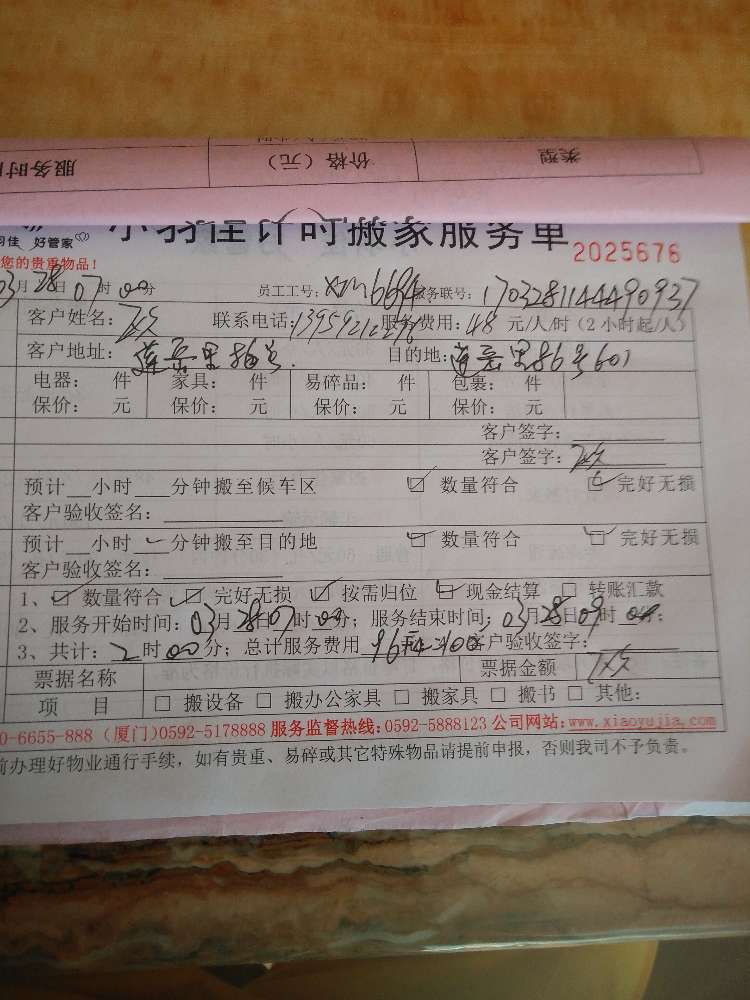 类型 价格（元） 服务时间
羽佳 好管家 小羽佳计时搬家服务单 2025676
您的贵重物品！
03月28日07时00分 员工工号：XM6694 服务联号：1703281144490937
客户姓名： 联系电话： 服务费用：48元/人/时（2小时起/人）
客户地址：莲岳里 目的地：莲岳里86号601
电器： 件 家具： 件 易碎品： 件 包裹： 件
保价： 元 保价： 元 保价： 元 保价： 元
客户签字：
客户签字：
预计 小时 分钟搬至候车区 数量符合 完好无损
客户验收签名：
预计 小时 分钟搬至目的地 数量符合 完好无损
客户验收签名：
1、 数量符合 完好无损 按需归位 现金结算 转账汇款
2、服务开始时间：03月28日07时00分；服务结束时间：03月28日09时00分；
3、共计：2时00分；总计服务费用 96 客户验收签字：
票据名称 票据金额
项 目 □ 搬设备 □ 搬办公家具 □ 搬家具 □ 搬书 □ 其他：
0-6655-888（厦门）0592-5178888 服务监督热线：0592-5888123 公司网站：www.xiaoyujia.com
前办理好物业通行手续，如有贵重、易碎或其它特殊物品请提前申报，否则我司不予负责。